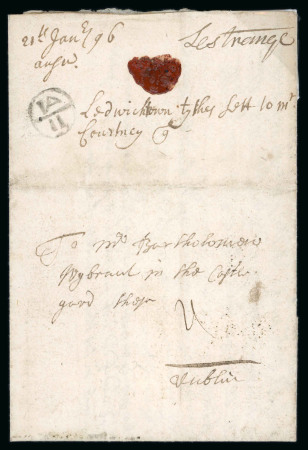 21th Janry 96
Lestrange
IA
11
Ledwicktown tythes Sett to mr
Courtney
To mr Bartholomew
Wybrant in the Castle
yard these
Dublin